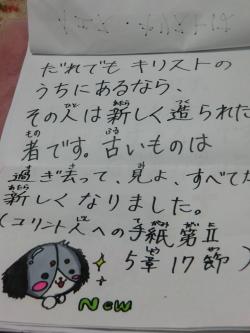 だれでも キリストの
うちにあるなら、
その人は新しく造られた
者です。古いものは
過ぎ去って、見よ、すべてが
新しくなりました。
(コリント人への手紙第Ⅱ
5章17節)
New